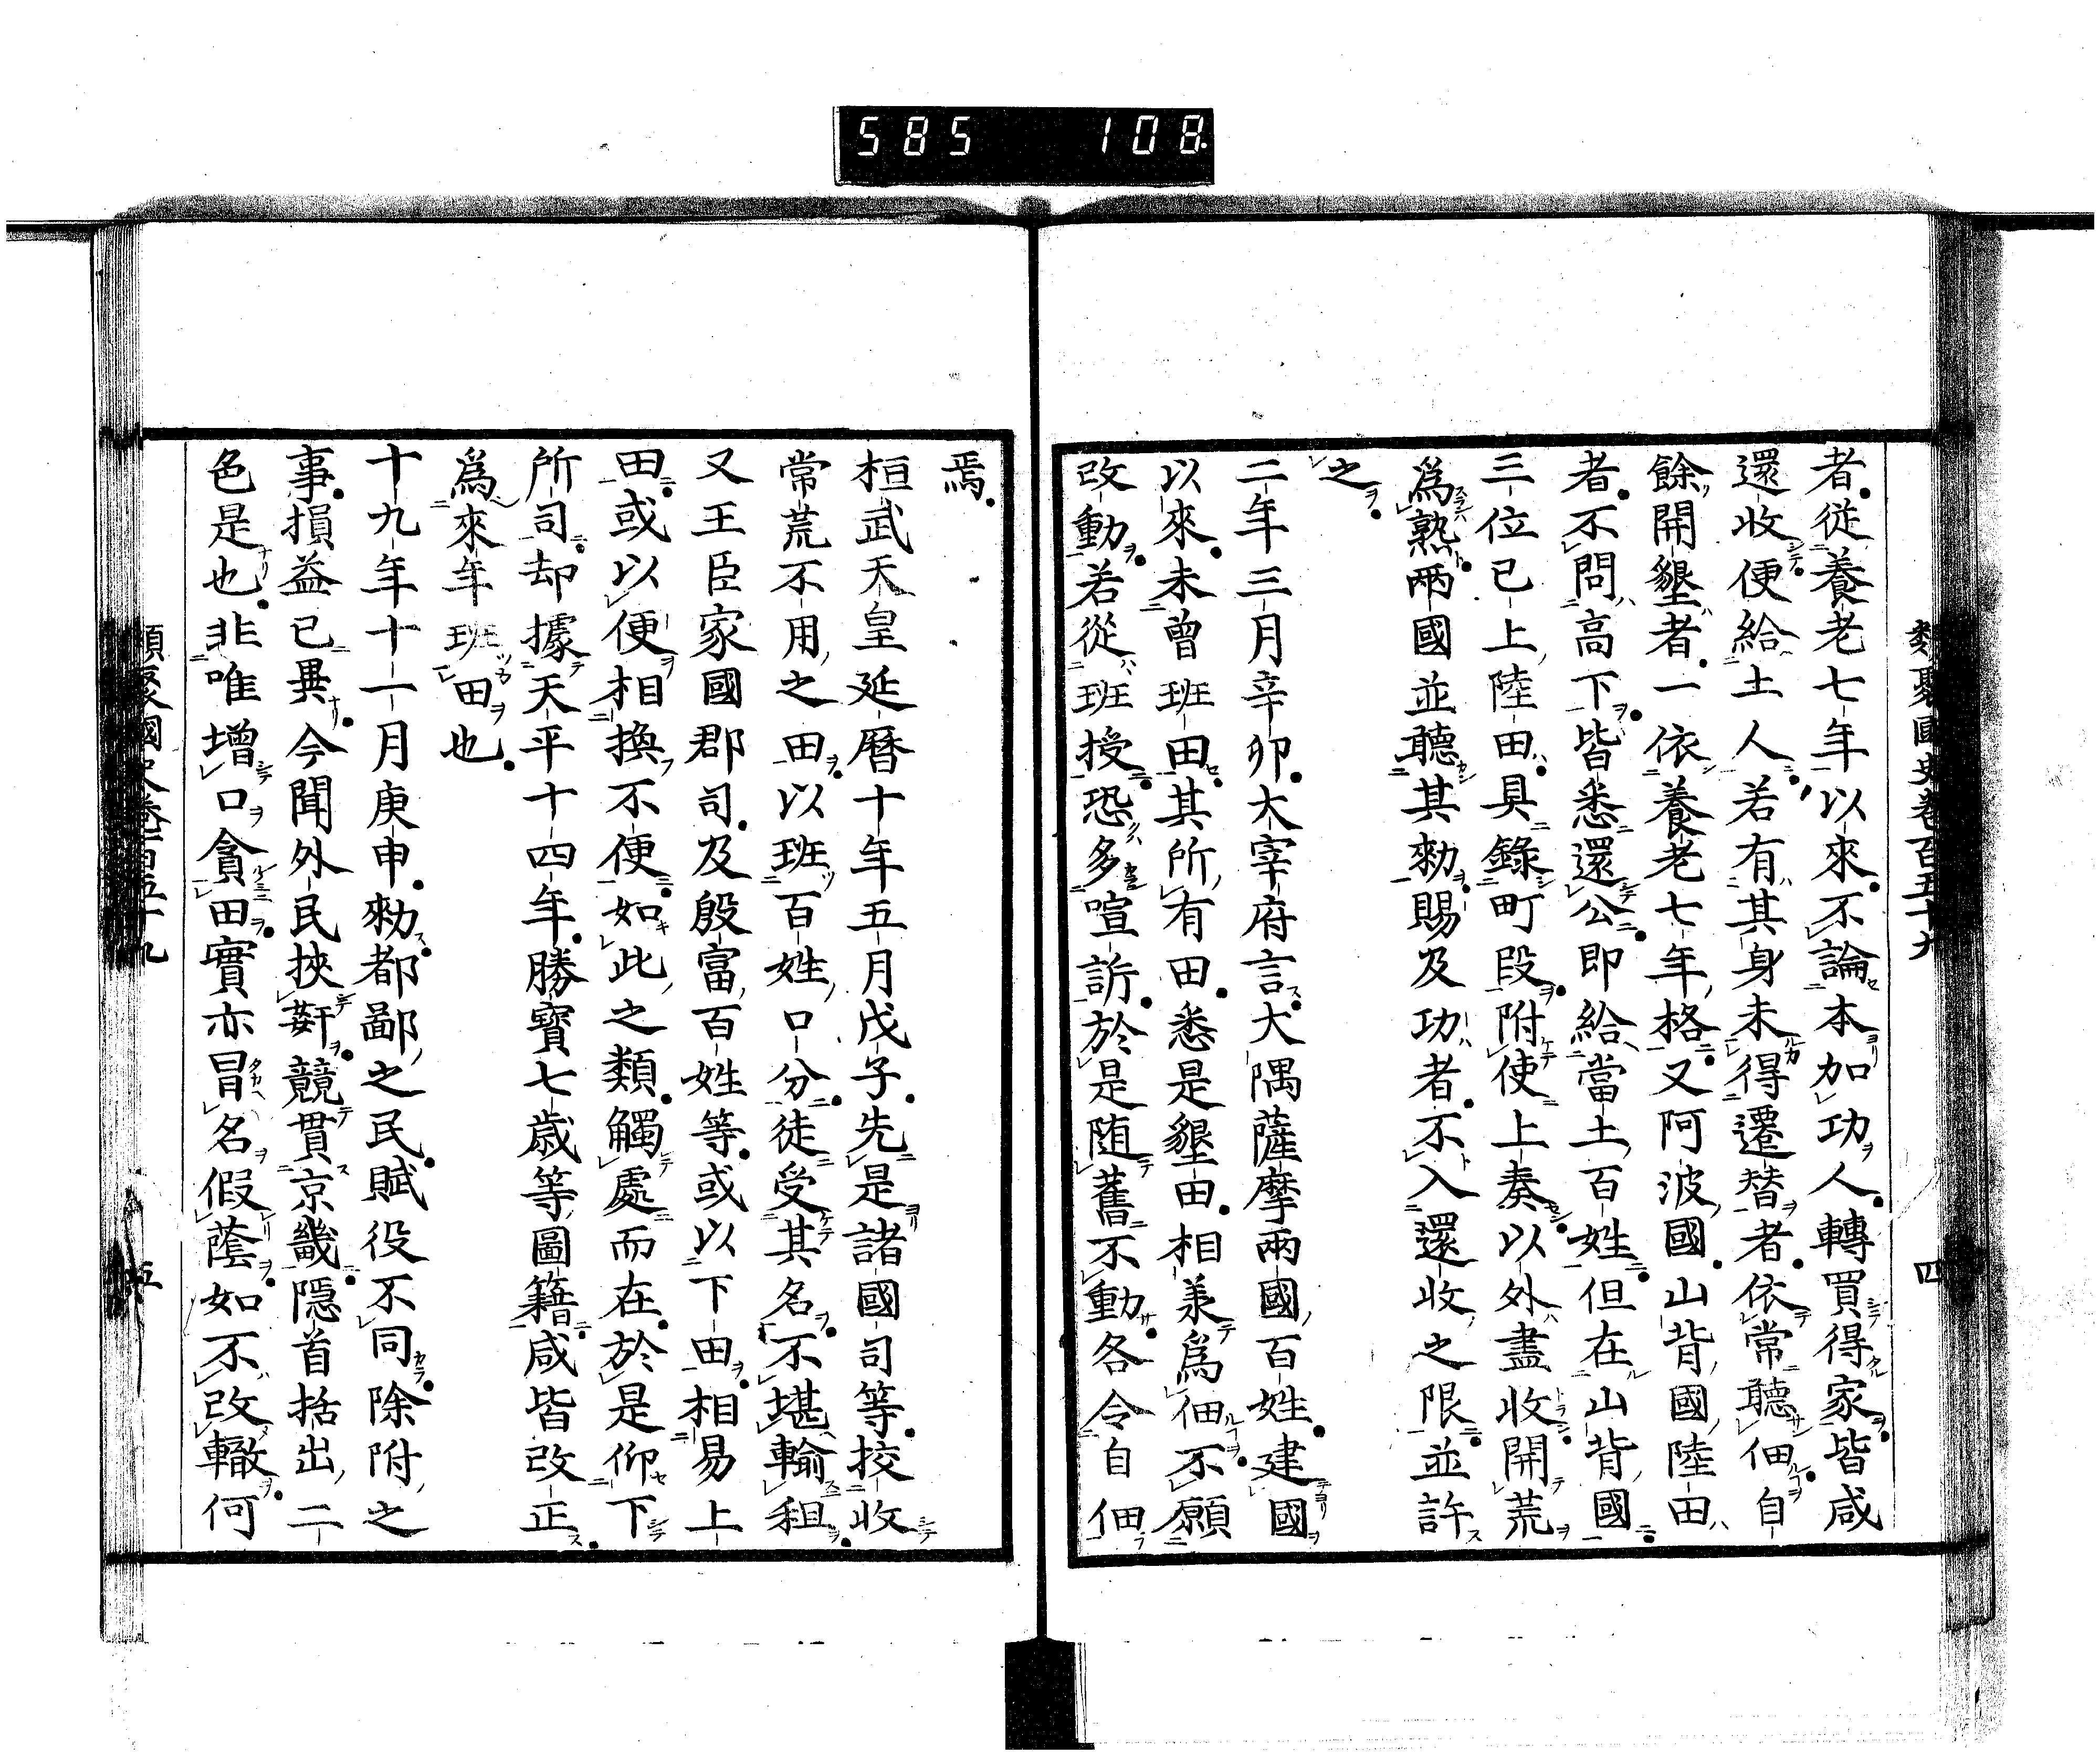 585 108
類聚國史卷百五十九 四
者從養老七年以來不論本加功人轉買得家皆咸
還收便給土人若有其身未得遷替者依常聽佃自
餘開墾者一依養老七年格又阿波國山背國陸田
者不問高下皆悉還公即給當土百姓但在山背國
三位已上陸田具錄町段附使上奏以外盡收開荒
爲熟兩國並聽其勑賜及功者不入還收之限並許
之
二年三月辛卯大宰府言大隅薩摩兩國百姓建國
以來未曾班田其所有田悉是墾田相羕爲佃不願
改動若從班授恐多喧訴於是随舊不動各令自佃
焉
桓武天皇延曆十年五月戊子先是諸國司等挍收
常荒不用之田以班百姓口分徒受其名不堪輸租
又王臣家國郡司及殷富百姓等或以下田相易上
田或以便相換不便如此之類觸處而在於是仰下
所司却據天平十四年勝寶七歲等圖籍咸皆改正
爲來年班田也
十九年十一月庚申勑都鄙之民賦役不同除附之
事損益已異今聞外民挾姧競貫京畿隱首括出二
色是也非唯增口貪田實亦冒名假蔭如不改轍何
類聚國史卷百五十九 五